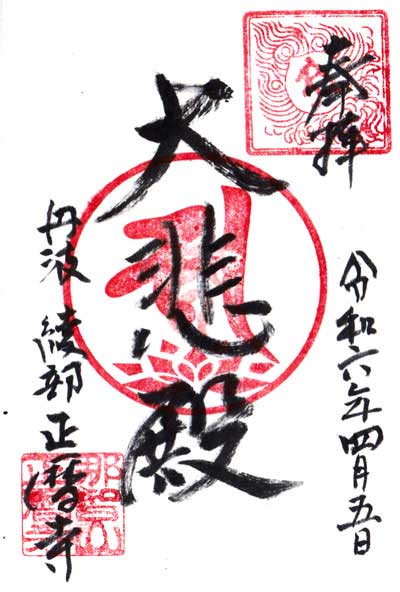 奉拝
令和六年四月五日
大悲殿
丹波 綾部 正暦寺